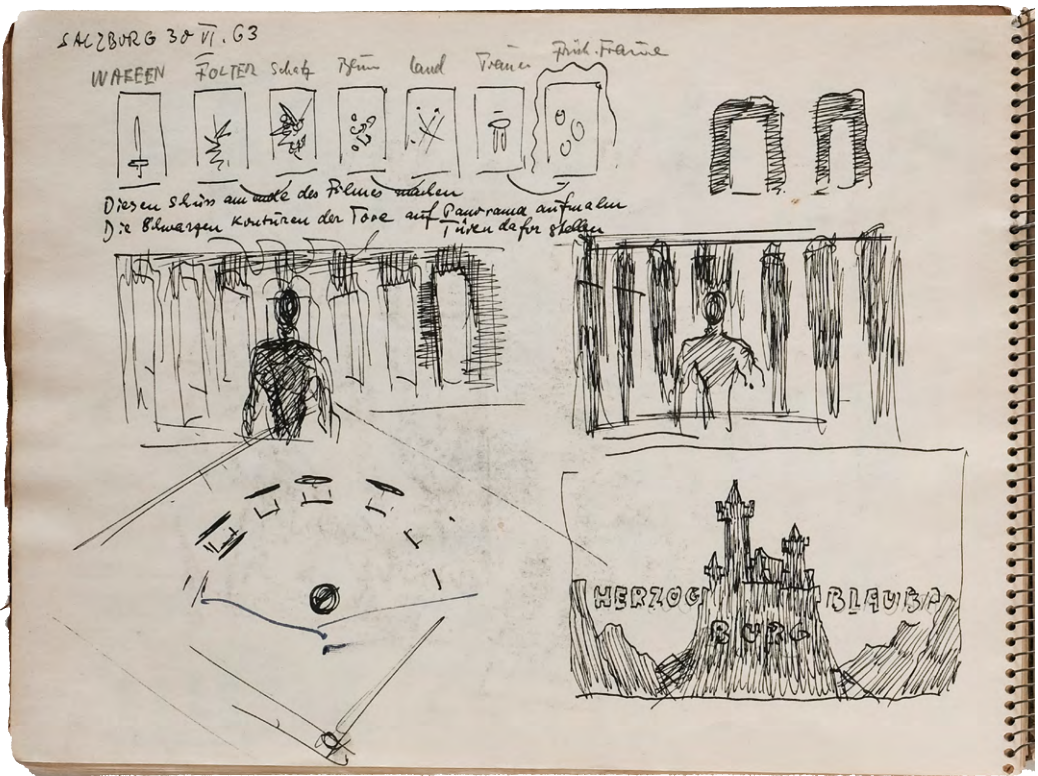 SALZBURG 30 VI. 63
WAFFEN FOLTER Schatz Blum Land Tränen Früh. Fraune
Diesen Schuss am ende des Filmes machen
Die Schwarzen Konturen der Tore auf Panorama aufmalen
Türen dafor stellen
HERZOG BLAUBA
BURG